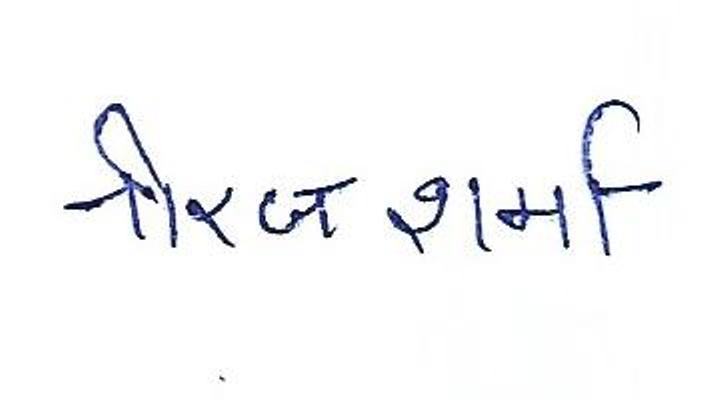 नीरज शर्मा